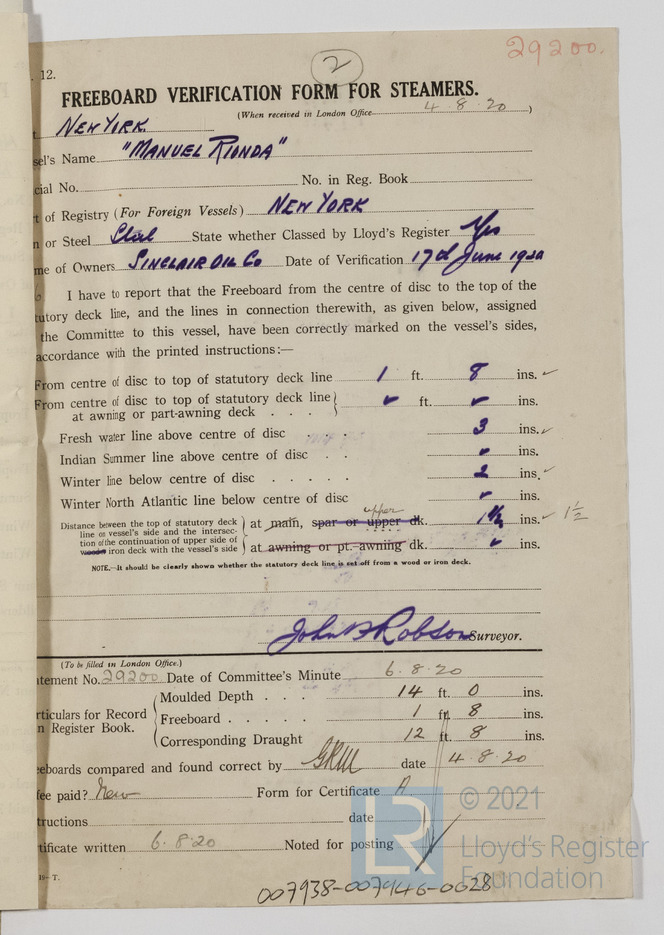 2
29200.
. 12.
FREEBOARD VERIFICATION FORM FOR STEAMERS.
(When received in London Office 4.8.20 )
t New York
sel's Name "Manuel Rionda"
cial No. No. in Reg. Book
t of Registry (For Foreign Vessels) New York
n or Steel Steel State whether Classed by Lloyd's Register Yes
me of Owners Sinclair Oil Co Date of Verification 17th June 1920
I have to report that the Freeboard from the centre of disc to the top of the
tutory deck line, and the lines in connection therewith, as given below, assigned
the Committee to this vessel, have been correctly marked on the vessel's sides,
accordance with the printed instructions:—
From centre of disc to top of statutory deck line 1 ft. 8 ins. ✓
From centre of disc to top of statutory deck line
at awning or part-awning deck . . . ✓ ft. ✓ ins.
Fresh water line above centre of disc . . 3 ins. ✓
Indian Summer line above centre of disc . . ✓ ins.
Winter line below centre of disc . . . . . 2 ins. ✓
Winter North Atlantic line below centre of disc ✓ ins.
upper
Distance between the top of statutory deck
line on vessel's side and the intersec-
tion of the continuation of upper side of
wood or iron deck with the vessel's side
at main, spar or upper dk. 1½ ins. ✓ 1½
at awning or pt.-awning dk. ✓ ins.
NOTE.—It should be clearly shown whether the statutory deck line is set off from a wood or iron deck.
John B Robson Surveyor.
(To be filled in London Office.)
tement No. 29200 Date of Committee's Minute 6.8.20
rticulars for Record
n Register Book.
Moulded Depth . . . 14 ft. 0 ins.
Freeboard . . . . . 1 ft. 8 ins.
Corresponding Draught 12 ft. 8 ins.
eeboards compared and found correct by date 4.8.20
fee paid? New Form for Certificate A
tructions date
tificate written 6.8.20 Noted for posting
19– T.
007938-007946-0028
LR
© 2021
Lloyd's Register
Foundation